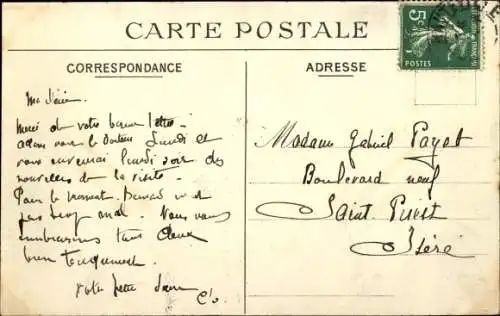 CARTE POSTALE
CORRESPONDANCE
ADRESSE
5c
POSTES
Merci de votre bonne lettre
allons voir le docteur Lundi et
vous enverrai lundi soir des
nouvelles de la visite.
Pour le moment
pas trop mal. Nous vous
embrassons tous deux
bien
votre petite
Madame Gabriel Payet
Boulevard neuf
Saint
Isère